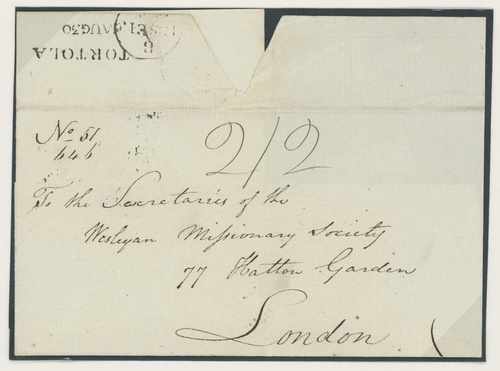 TORTOLA
AUG 30
No 51
2/2
To the Secretaries of the
Wesleyan Missionary Society
77 Hatton Garden
London